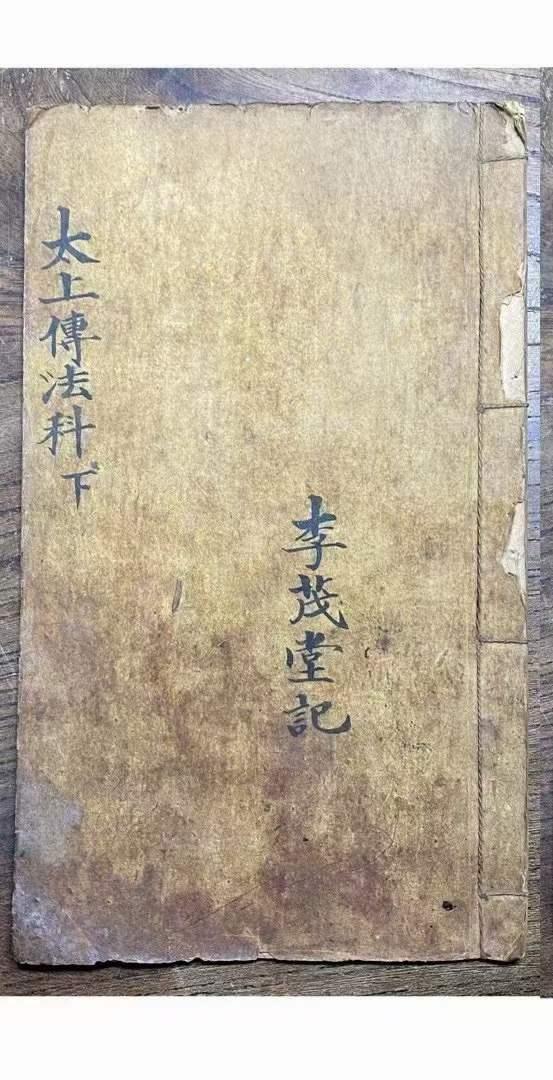 太上傳法科下
李茂堂記